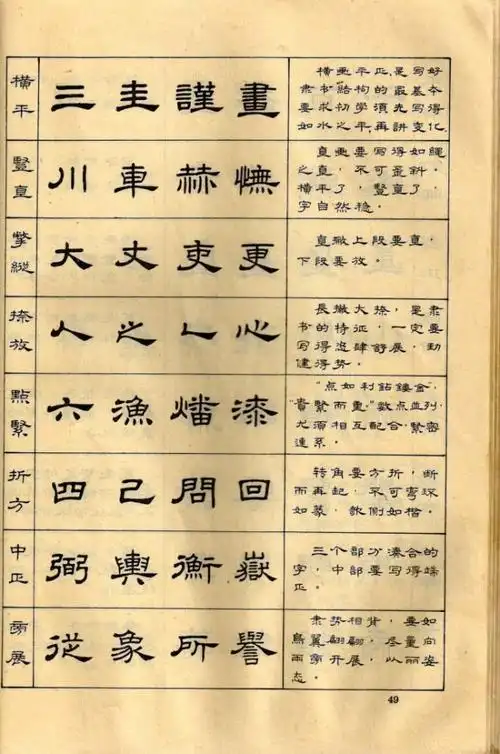 橫平 三 圭 謹 畫
横画平正,是写好
隶书結构的最基本
要求,初学須先写得
如水之平,再讲变化。
豎直 川 車 赫 憮
直画要写得如繩
之直,不可歪斜。
横平了,豎直了,
字自然稳。
撇縱 大 丈 吏 更
直撇上段要直,
下段要放。
捺放 人 之 乀 心
長撇大捺,是隶
书的特征,一定要
写得恣肆舒展,勁
健得势。
點緊 六 漁 燔 漆
“点如利鉆鏤金”,
“貴緊而重。”数点並列,
尤須相互配合,緊密
連系。
折方 四 己 問 回
转角要方折,断
而再起,不可弯环
如篆,欹侧如楷。
中正 弼 輿 衡 嶽
三个部分湊合的
字,中部要写得端
正。
旁展 從 象 所 譽
隶势相背,要如
鳥翼翩翩,尽量向
兩旁开展,以丽姿
态。
49